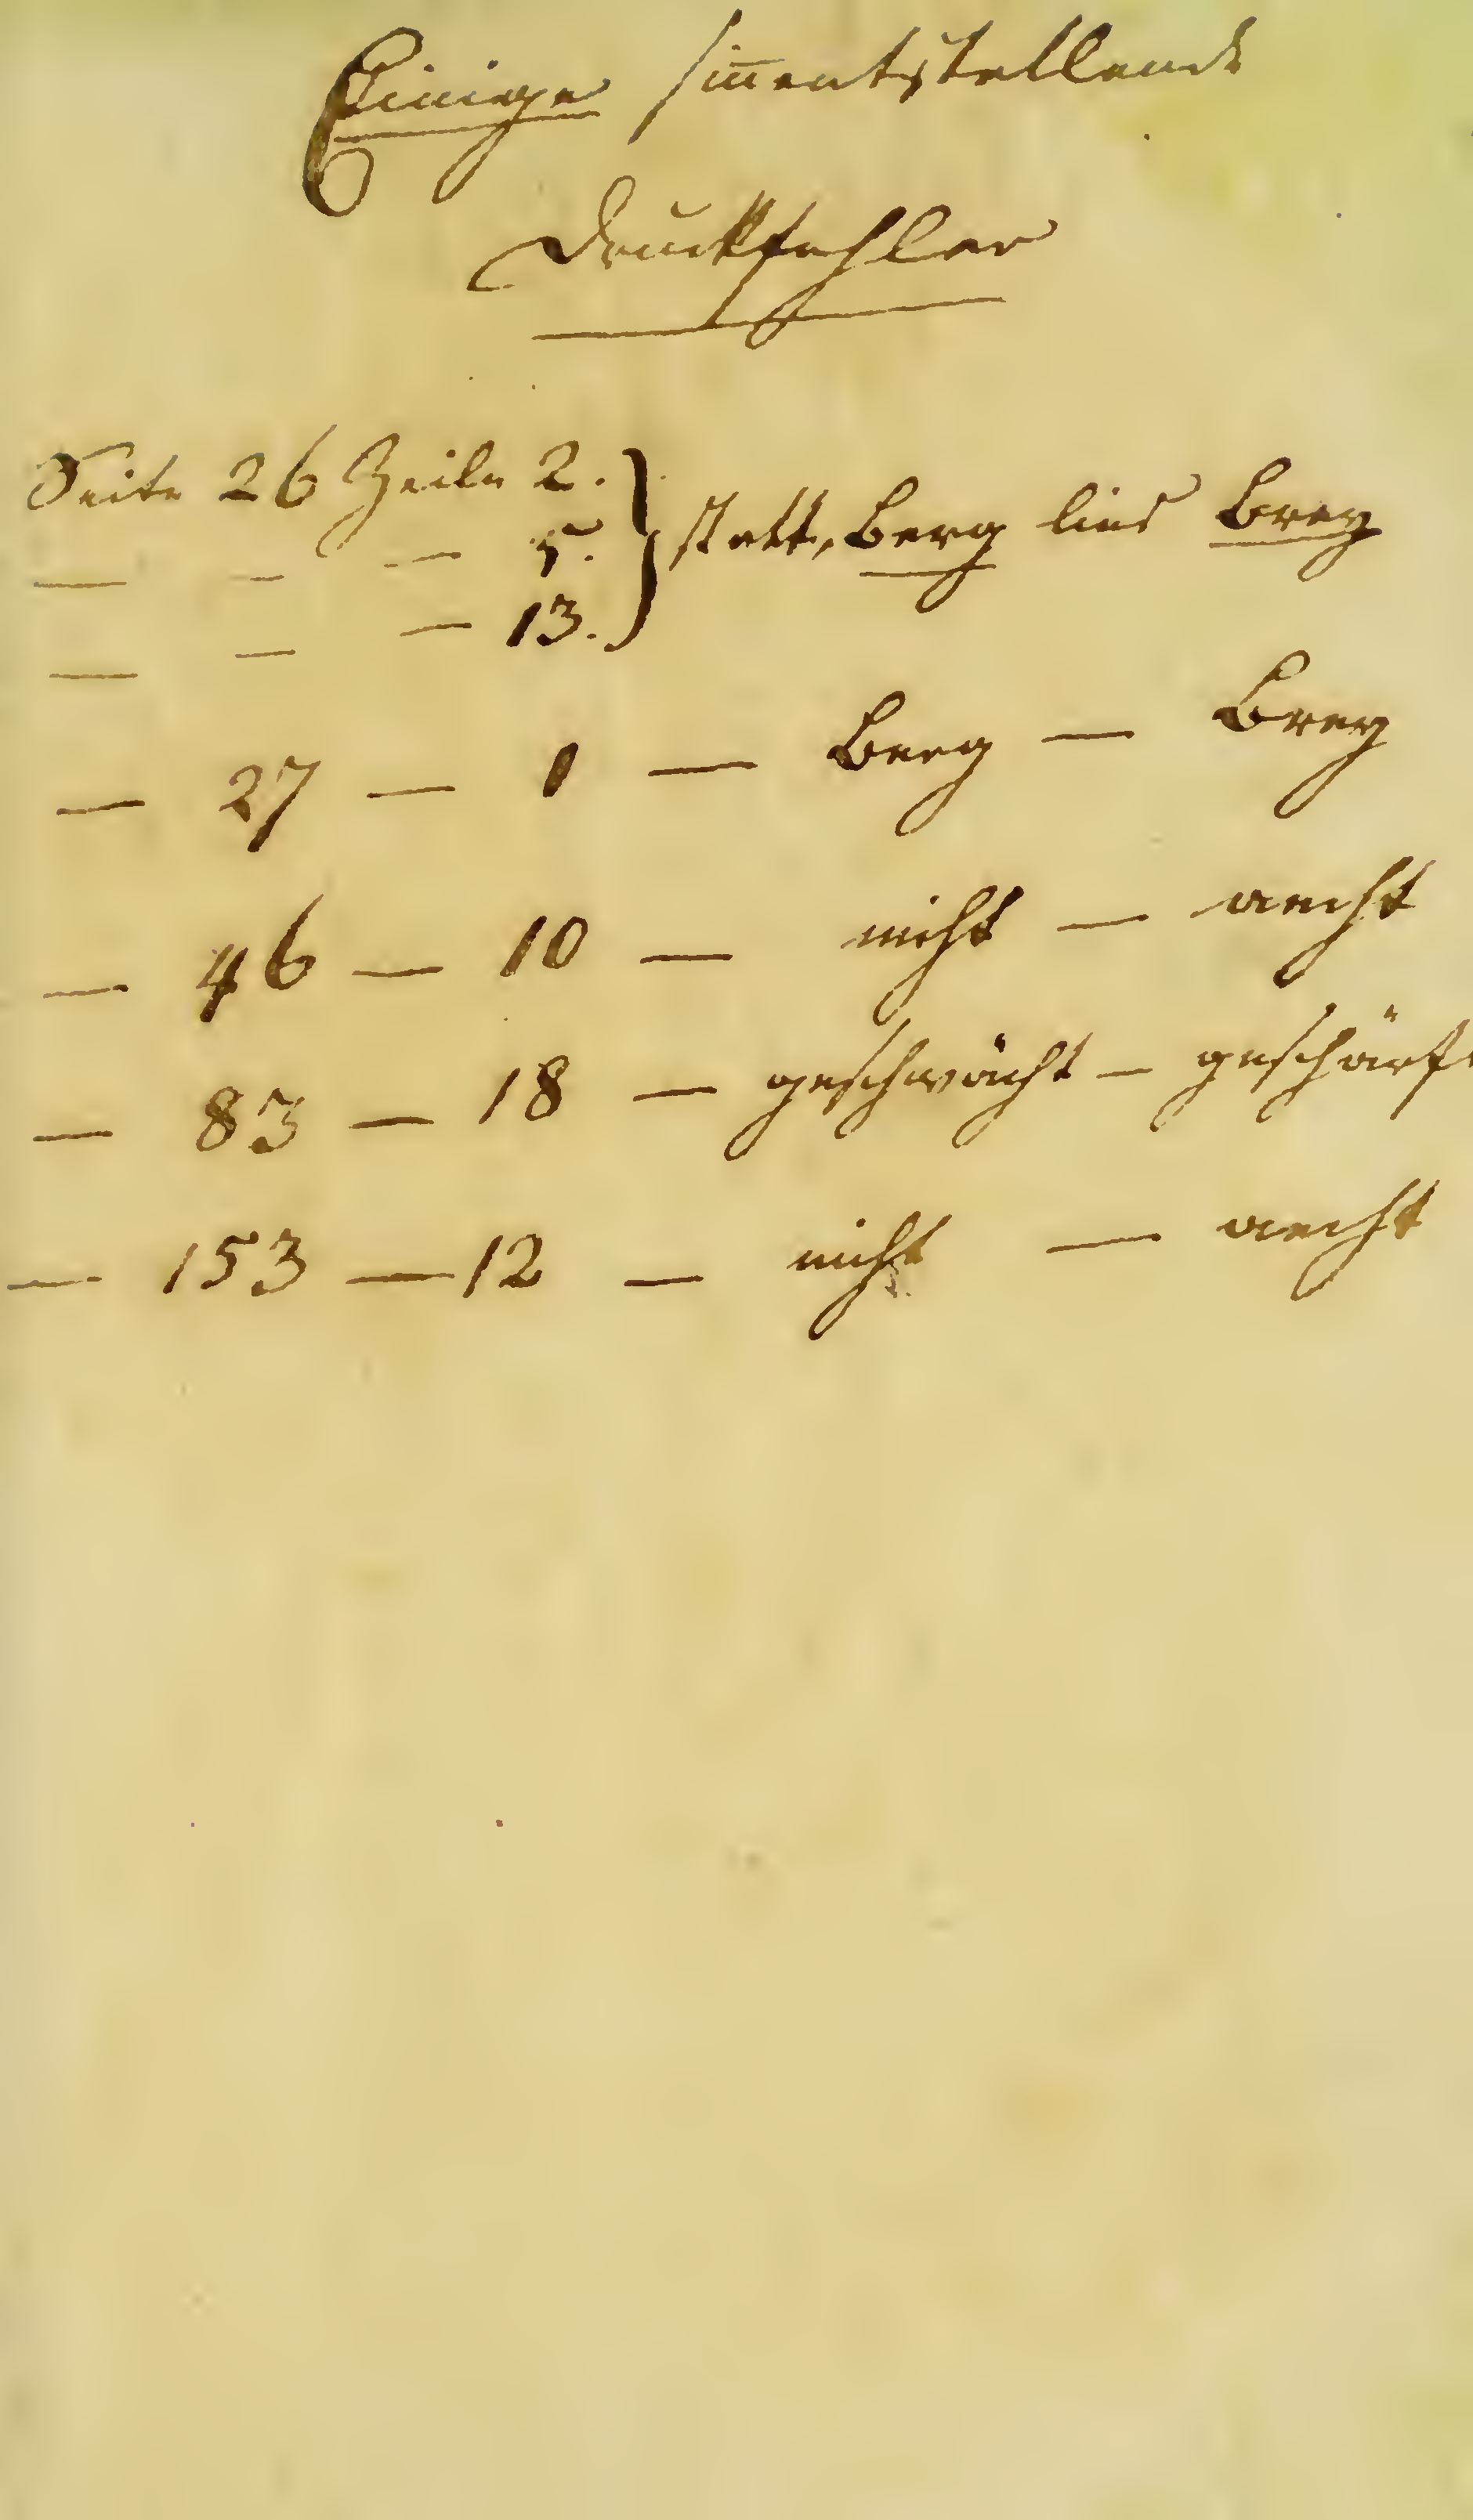 Einige sin̄entstellende
Druckfehler
Seite 26 Zeile 2. } statt, Berg lies Brey
— — — 5.
— — — 13.
— 27 — 1 — Berg — Brey
— 46 — 10 — nicht — aecht
— 83 — 18 — geschwächt — geschärft
— 153 — 12 — nicht — aecht